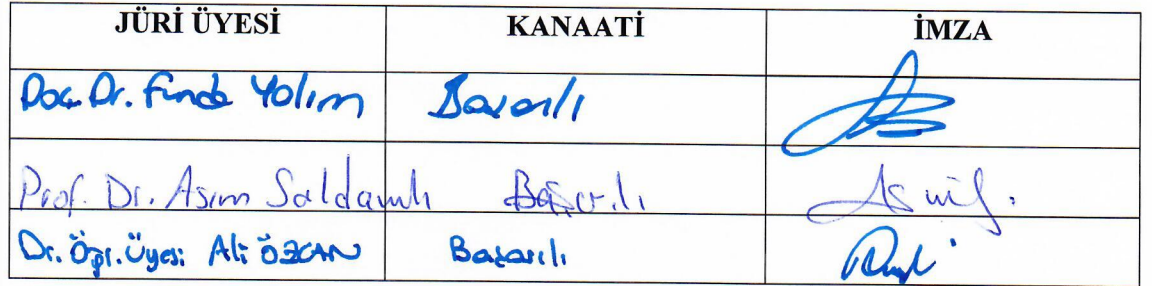 JÜRİ ÜYESİ KANAATİ İMZA
Doç. Dr. Funda Yalım Başarılı
Prof. Dr. Asım Saldamlı Başarılı
Dr. Öğr. Üyesi Ali ÖZCAN Başarılı